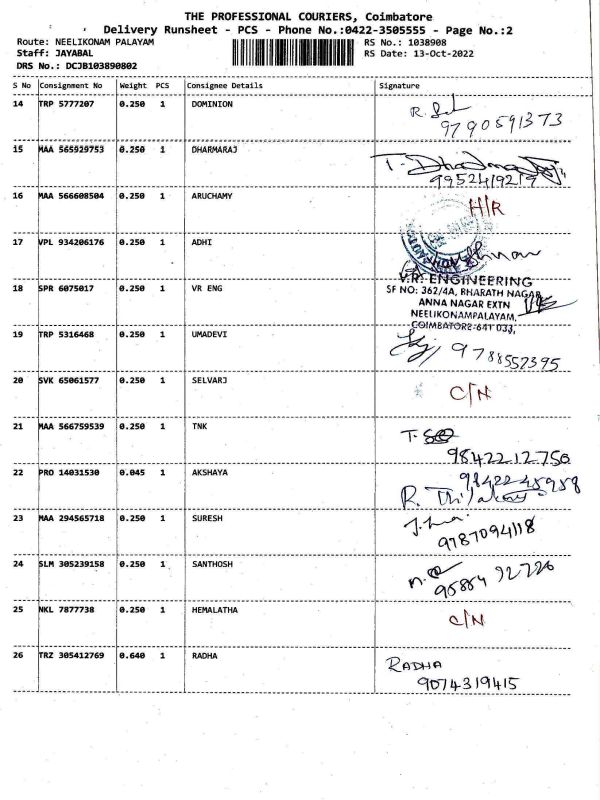 THE PROFESSIONAL COURIERS, Coimbatore
Delivery Runsheet - PCS - Phone No.:0422-3505555 - Page No.:2
Route: NEELIKONAM PALAYAM RS No.: 1038908
Staff: JAYABAL RS Date: 13-Oct-2022
DRS No.: DCJB103890802
S No Consignment No Weight PCS Consignee Details Signature
14 TRP 5777207 0.250 1 DOMINION
9790591373
15 MAA 565929753 0.250 1 DHARMARAJ
9952419219
16 MAA 566608504 0.250 1 ARUCHAMY H/R
17 VPL 934206176 0.250 1 ADHI
18 SPR 6075017 0.250 1 VR ENG
V.R. ENGINEERING
SF NO: 362/4A, BHARATH NAGAR
ANNA NAGAR EXTN
NEELIKONAMPALAYAM,
COIMBATORE-641 033,
19 TRP 5316468 0.250 1 UMADEVI 9788552395
20 SVK 65061577 0.250 1 SELVARJ C/N
21 MAA 566759539 0.250 1 TNK
9842212750
22 PRO 14031530 0.045 1 AKSHAYA 98422 45958
23 MAA 294565718 0.250 1 SURESH
9787094118
24 SLM 305239158 0.250 1 SANTHOSH
25 NKL 7877738 0.250 1 HEMALATHA C/N
26 TRZ 305412769 0.640 1 RADHA RADHA
9074319415